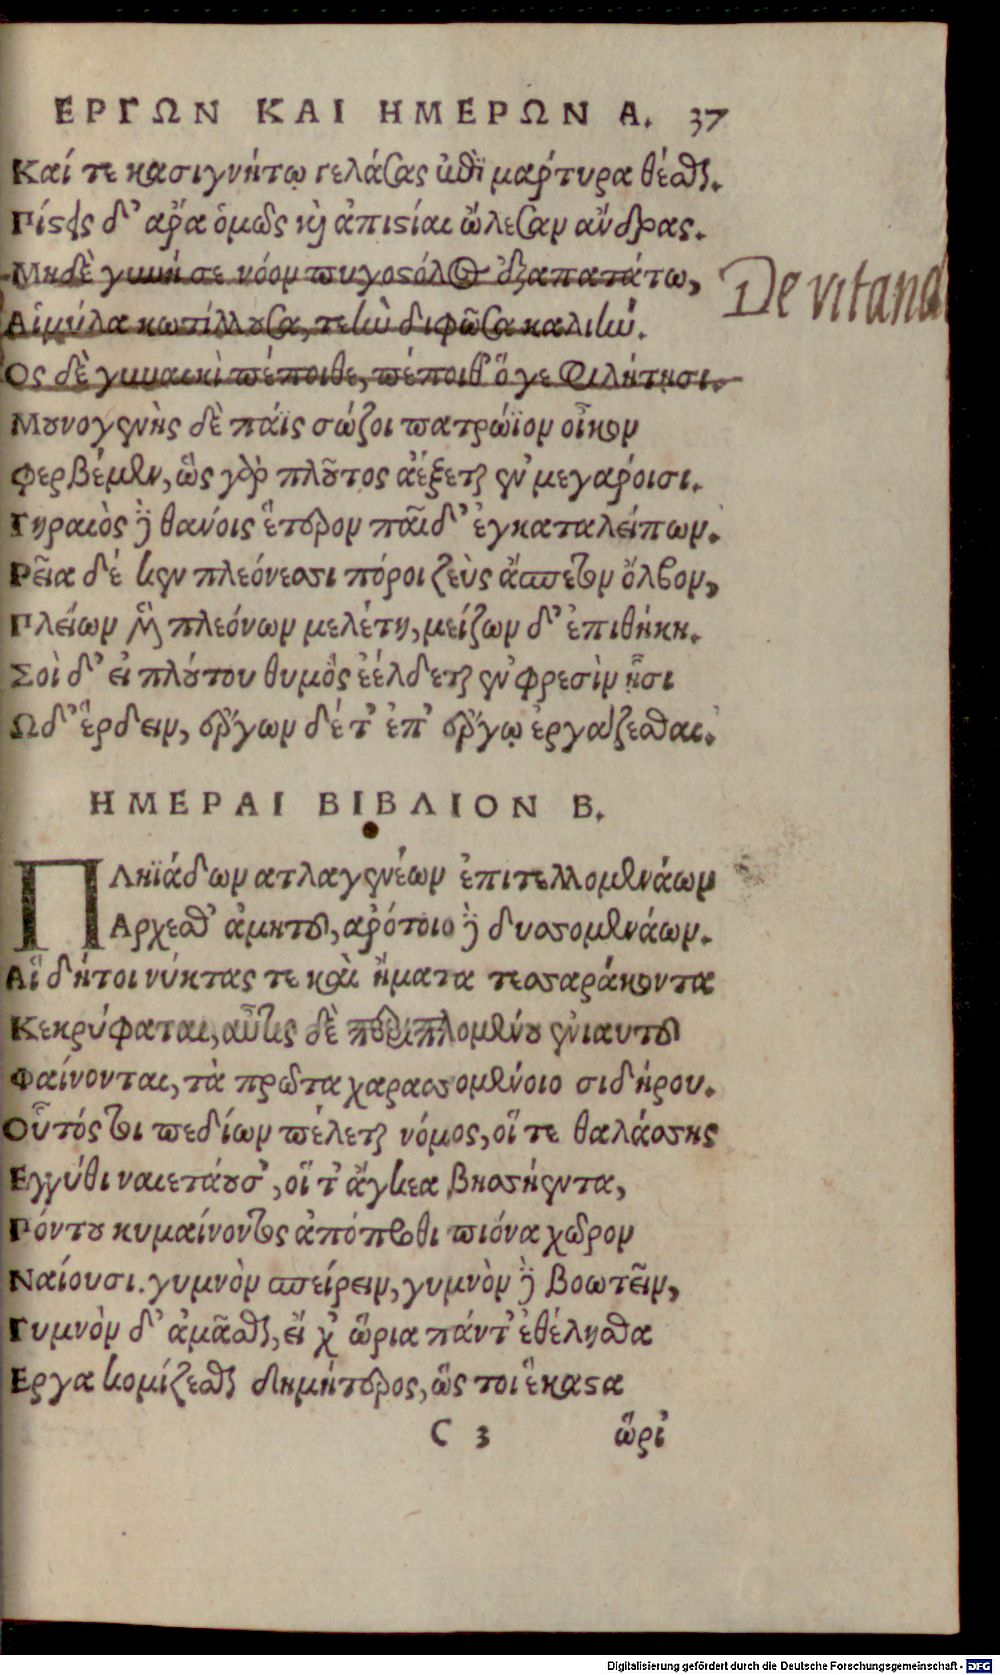 ΕΡΓΩΝ ΚΑΙ ΗΜΕΡΩΝ Α. 37
Καί τε κασιγνήτῳ γελάσας ἐπὶ μάρτυρα θέσθαι.
Πίστεις δ' ἄρα ὁμῶς καὶ ἀπιστίαι ὤλεσαν ἄνδρας.
Μηδὲ γυνή σε νόον πυγοστόλος ἐξαπατάτω,
Αἱμύλα κωτίλλουσα, τεὴν διφῶσα καλιήν.
Ος δὲ γυναικὶ πέποιθε, πέποιθ' ὅγε φιλήτῃσι.
Μουνογενὴς δὲ πάϊς σώζοι πατρώϊον οἶκον
Φερβέμεν, ὣς γὰρ πλοῦτος ἀέξεται ἐν μεγάροισι.
Γηραιὸς δὲ θάνοις ἕτερον παῖδ' ἐγκαταλείπων.
Ρεῖα δέ κεν πλεόνεσσι πόροι ζεὺς ἄσπετον ὄλβον,
Πλείων μὲν πλεόνων μελέτη, μείζων δ' ἐπιθήκη.
Σοὶ δ' εἰ πλούτου θυμὸς ἐέλδεται ἐν φρεσὶν ᾗσι
Ωδ' ἔρδειν, ἔργων δέ τ' ἐπ' ἔργῳ ἐργάζεσθαι.
ΗΜΕΡΑΙ ΒΙΒΛΙΟΝ Β.
ΠΛηϊάδων ατλαγενέων ἐπιτελλομενάων
Αρχεσθ' ἀμητοῦ, ἀρότοιο δὲ δυσσομενάων.
Αἳ δήτοι νύκτας τε καὶ ἤματα τεσσαράκοντα
Κεκρύφαται, αὖτις δὲ περιπλομένου ἐνιαυτοῦ
Φαίνονται, τὰ πρῶτα χαρασσομένοιο σιδήρου.
Οὗτός τοι πεδίων πέλεται νόμος, οἵ τε θαλάσσης
Εγγύθι ναιετάουσ', οἵ τ' ἄγκεα βησσήεντα,
Πόντου κυμαίνοντος ἀπόπροθι πίονα χῶρον
Ναίουσι. γυμνὸν σπείρειν, γυμνὸν δὲ βοωτεῖν,
Γυμνὸν δ' ἀμᾶσθαι, εἴ χ' ὥρια πάντ' ἐθέλησθα
Εργα κομίζεσθαι δημήτερος, ὥς τοι ἕκαστα
C 3 ὥρι'
De vitand
Digitalisierung gefördert durch die Deutsche Forschungsgemeinschaft - DFG